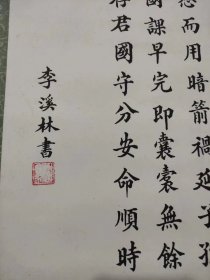 而用暗箭禍延子孫
國課早完即囊橐無餘
君國守分安命順時
李溪林書